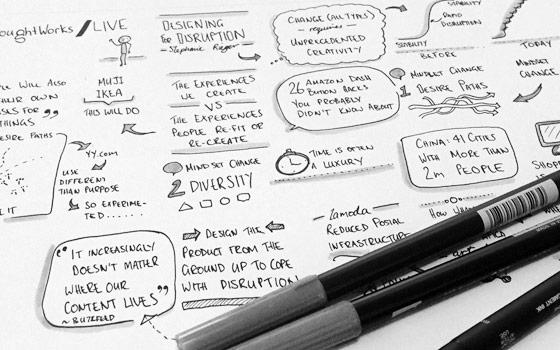 oughtWorks /LIVE
DESIGNING
for DISRUPTION
CHANGE (ALL TYPES)
requires
UNPRECEDENTED
CREATIVITY
STABILITY
RAPID
DISRUPTION
STABILITY
BEFORE
TODAY
PLE WILL ALSO
THEIR OWN
SES FOR
THINGS
DESIRE PATHS
MUJI
IKEA
THIS WILL DO
YY.COM
USE
DIFFERENT
THAN PURPOSE
SO EXPERIME-
TED......
THE EXPERIENCES
WE CREATE
VS
THE EXPERIENCES
PEOPLE RE-FIT OR
RE-CREATE
MINDSET CHANGE
2 DIVERSITY
26 AMAZON DASH
BUTTON HACKS
YOU PROBABLY
DIDN'T KNOW ABOUT
TIME IS OFTEN
A LUXURY
MINDSET CHANGE
1 DESIRE PATHS
MINDSET
CHANGE
CHINA: 41 CITIES
WITH MORE THAN
2m PEOPLE
"IT INCREASINGLY
DOESN'T MATTER
WHERE OUR
CONTENT LIVES"
~ BUZZFEED
DESIGN THE
PRODUCT FROM THE
GROUND UP TO COPE
WITH DISRUPTION
Lamoda
REDUCED POSTAL
INFRASTRUCTURE